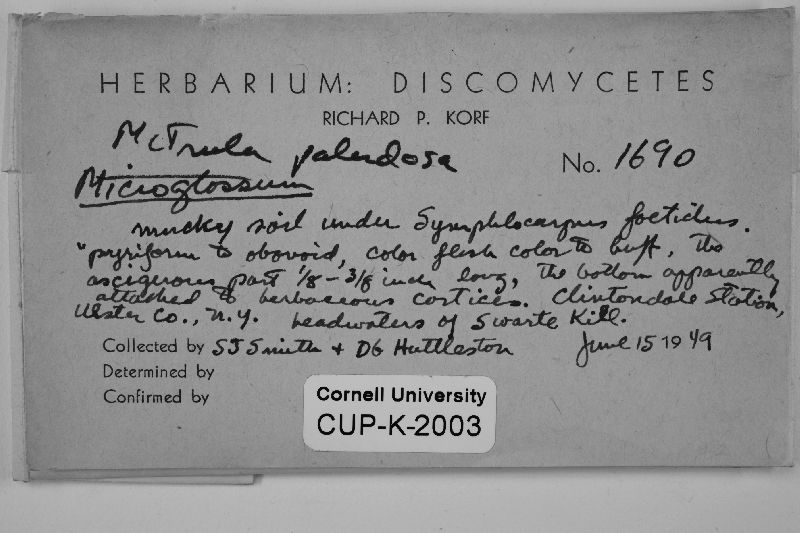 HERBARIUM: DISCOMYCETES
RICHARD P. KORF
Mitrula paludosa
No. 1690
Microglossum
mucky soil under Symphlocarpus foetidus.
"pyriform to obovoid, color flesh color to buff, the
ascigerous part 1/8 - 3/8 inch long, the bottom apparently
attached to herbaceous cortices. Clintondale Station,
Ulster Co., N.Y. headwaters of Swarte Kill.
Collected by SJ Smith + DG Huttleston June 15 1949
Determined by
Confirmed by
Cornell University
CUP-K-2003